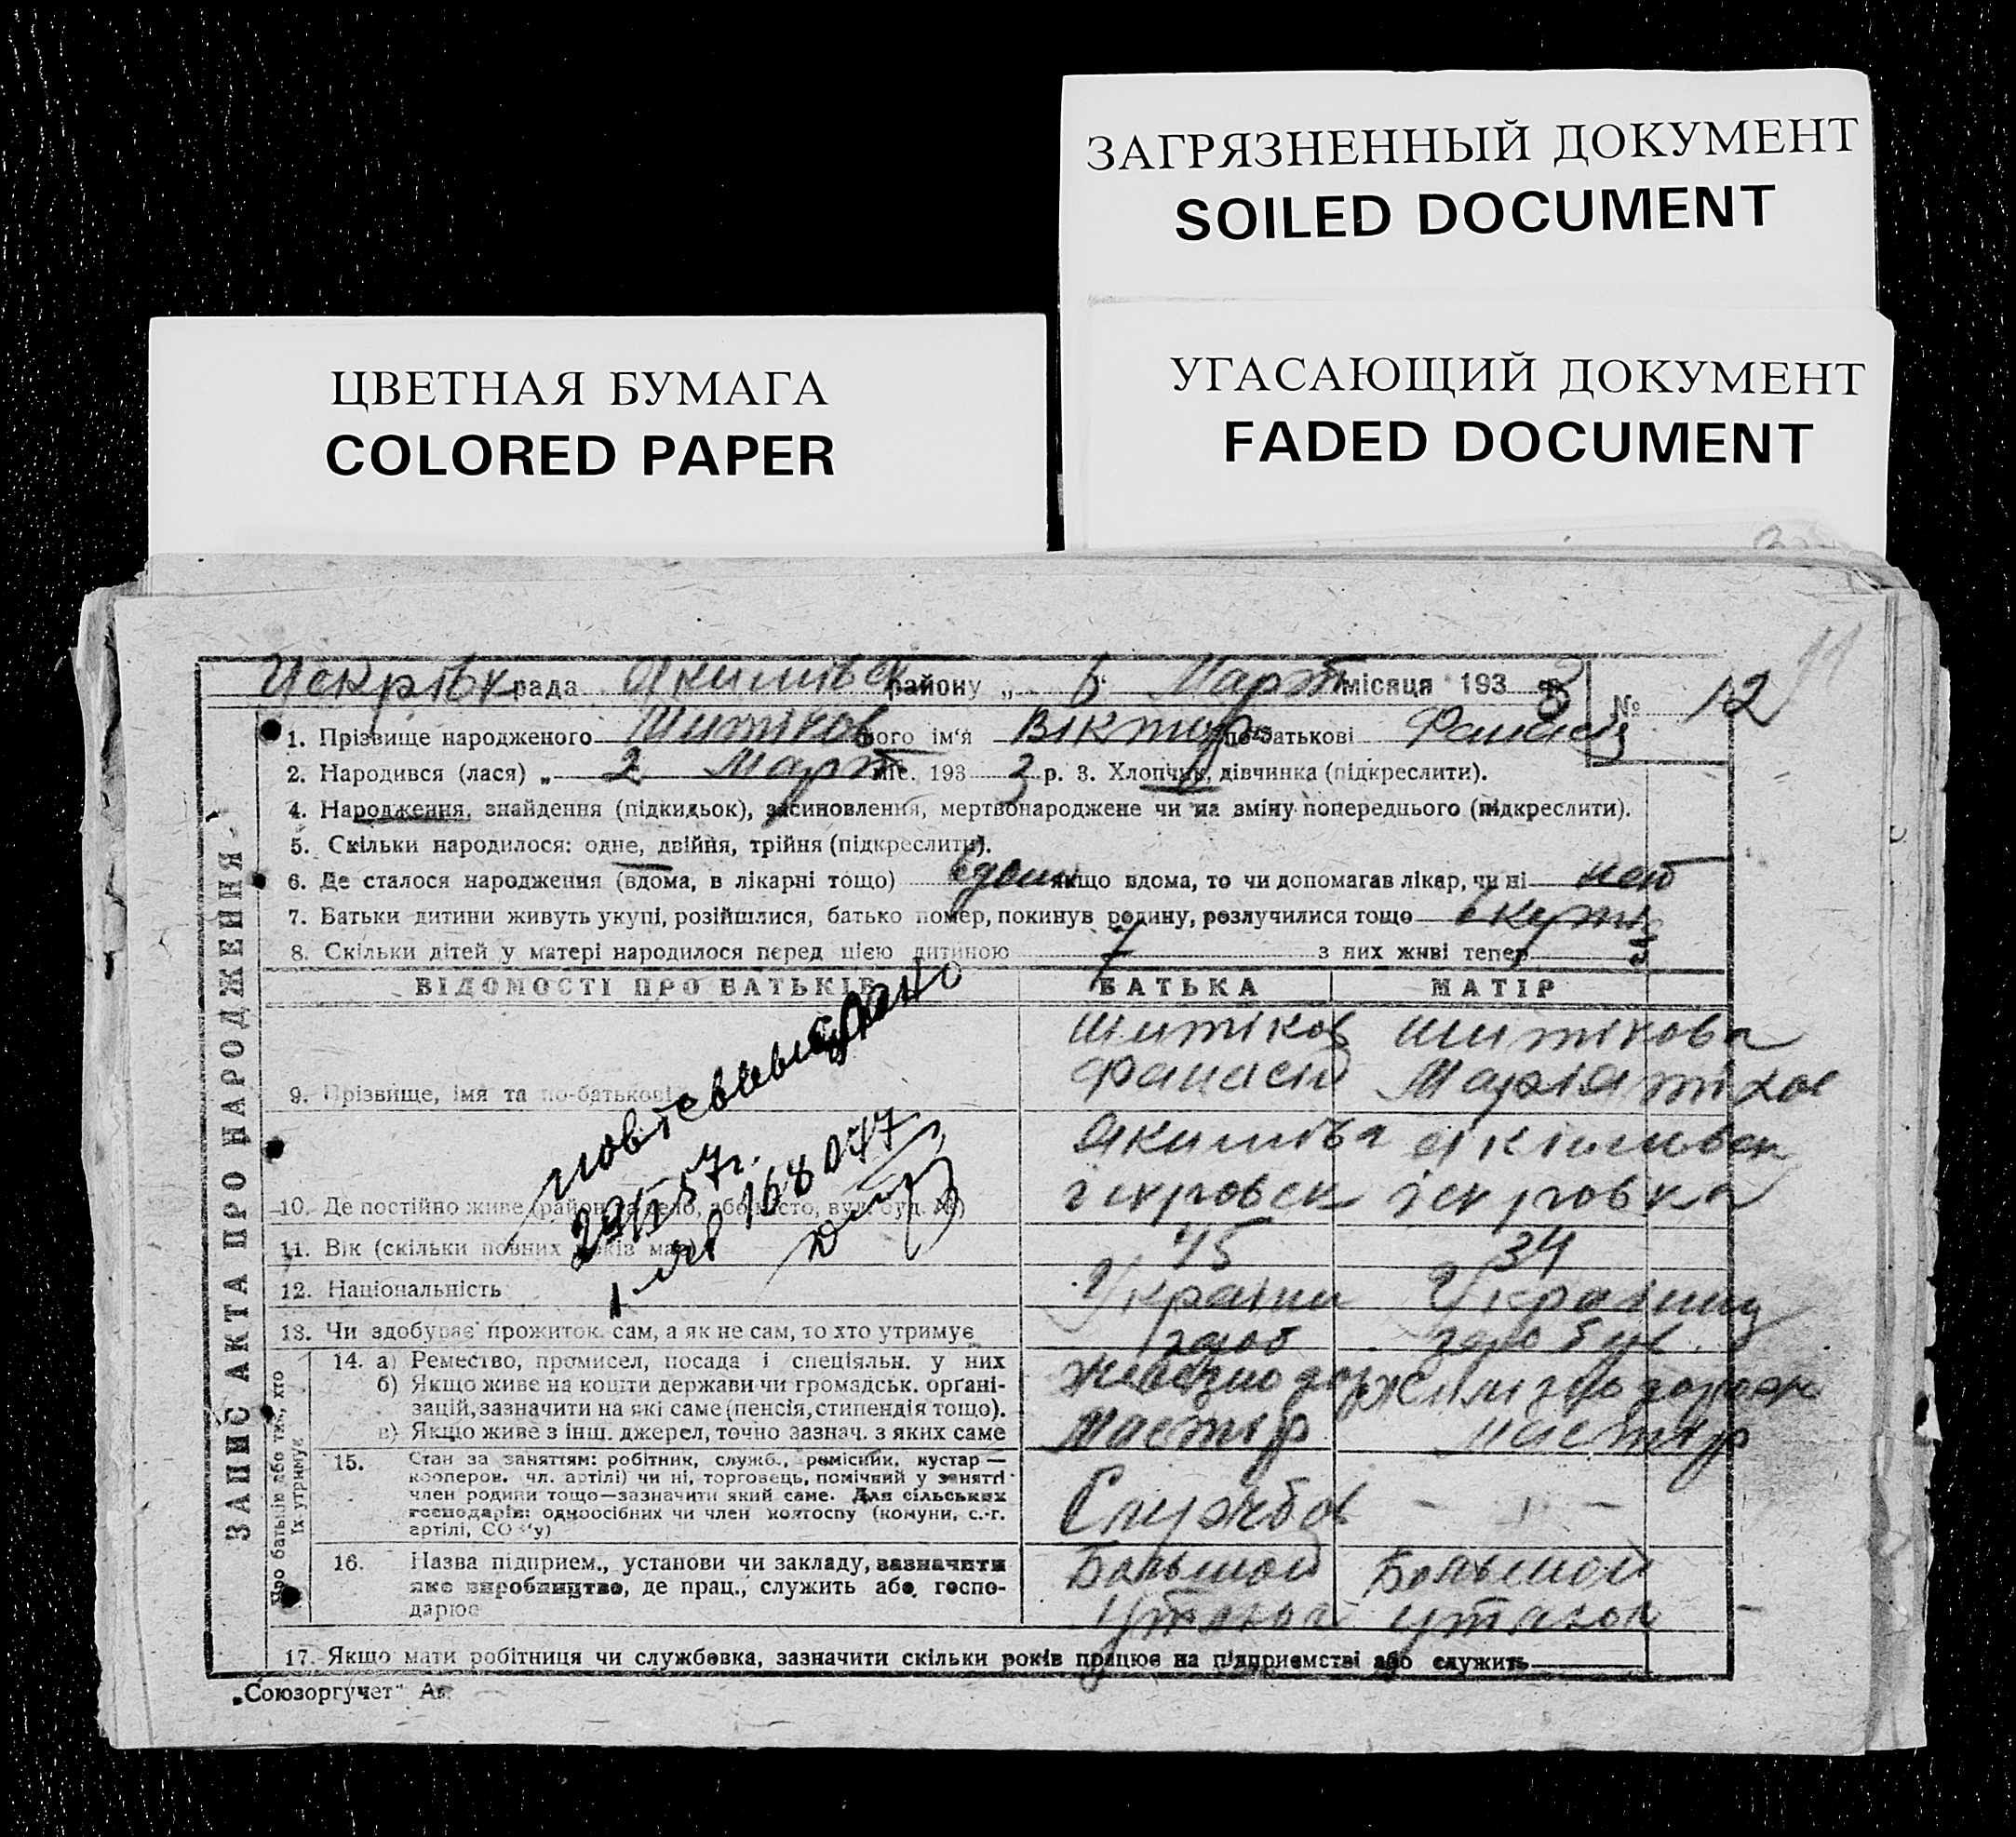 ЗАГРЯЗНЕННЫЙ ДОКУМЕНТ
SOILED DOCUMENT
ЦВЕТНАЯ БУМАГА
COLORED PAPER
УГАСАЮЩИЙ ДОКУМЕНТ
FADED DOCUMENT
11
Искрівк рада Якимівск району „ 6 Март місяця 193 3 р. № 12
1. Прізвище народженого Шитіков його ім‘я Віктор по батькові Фанасів
2. Народився (лася) „ 2 Март міс. 193 3 р. 3. Хлопчик, дівчинка (підкреслити).
4. Народження, знайдення (підкидьок), засиновлення, мертвонароджене чи на зміну попереднього (підкреслити).
5. Скільки народилося: одне, двійня, трійня (підкреслити).
6. Де сталося народження (вдома, в лікарні тощо) вдома якщо вдома, то чи допомагав лікар, чи ні нет
7. Батьки дитини живуть укупі, розійшлися, батько помер, покинув родину, розлучилися тощо вкупі
8. Скільки дітей у матері народилося перед цією дитиною 7 з них живі тепер 5
ВІДОМОСТІ ПРО БАТЬКІВ БАТЬКА МАТІР
Шитіков Шитікова
9. Прізвище, імя та по-батькові Фанасій Марія
Якимівка Якімивск
10. Де постійно живе (район та село, або місто, вул. буд. №) іскровск іскровка
11. Вік (скільки повних років має) 45 34
12. Національність Украіни Украінц
13. Чи здобуває прожиток сам, а як не сам, то хто утримує
14. а) Ремество, промисел, посада і спеціяльн. у них
б) Якщо живе на кошти держави чи громадськ. органі-
зацій, зазначити на які саме (пенсія, стипендія тощо).
в) Якщо живе з інш. джерел, точно зазнач. з яких саме Мастір мастір
15. Стан за заняттям: робітник, служб., ремісник, кустар —
кооперов. чл. артілі) чи ні, торговець, помічний у занятті
член родини тощо—зазначити який саме. Для сільських
господарів: одноосібних чи член колгоспу (комуни, с.-г.
артілі, СОЗ‘у) Службов — „ —
16. Назва підприєм., установи чи закладу, зазначити
яке виробництво, де прац., служить або госпо-
дарює Большой Утлюк Большой Утлюк
17. Якщо мати робітниця чи службовка, зазначити скільки років працює на підприємстві або служить
„Союзоргучет“
ЗАПИС АКТА ПРО НАРОДЖЕННЯ
Про батьків або тих, хто
їх утримує
повт. св. выдано
168077